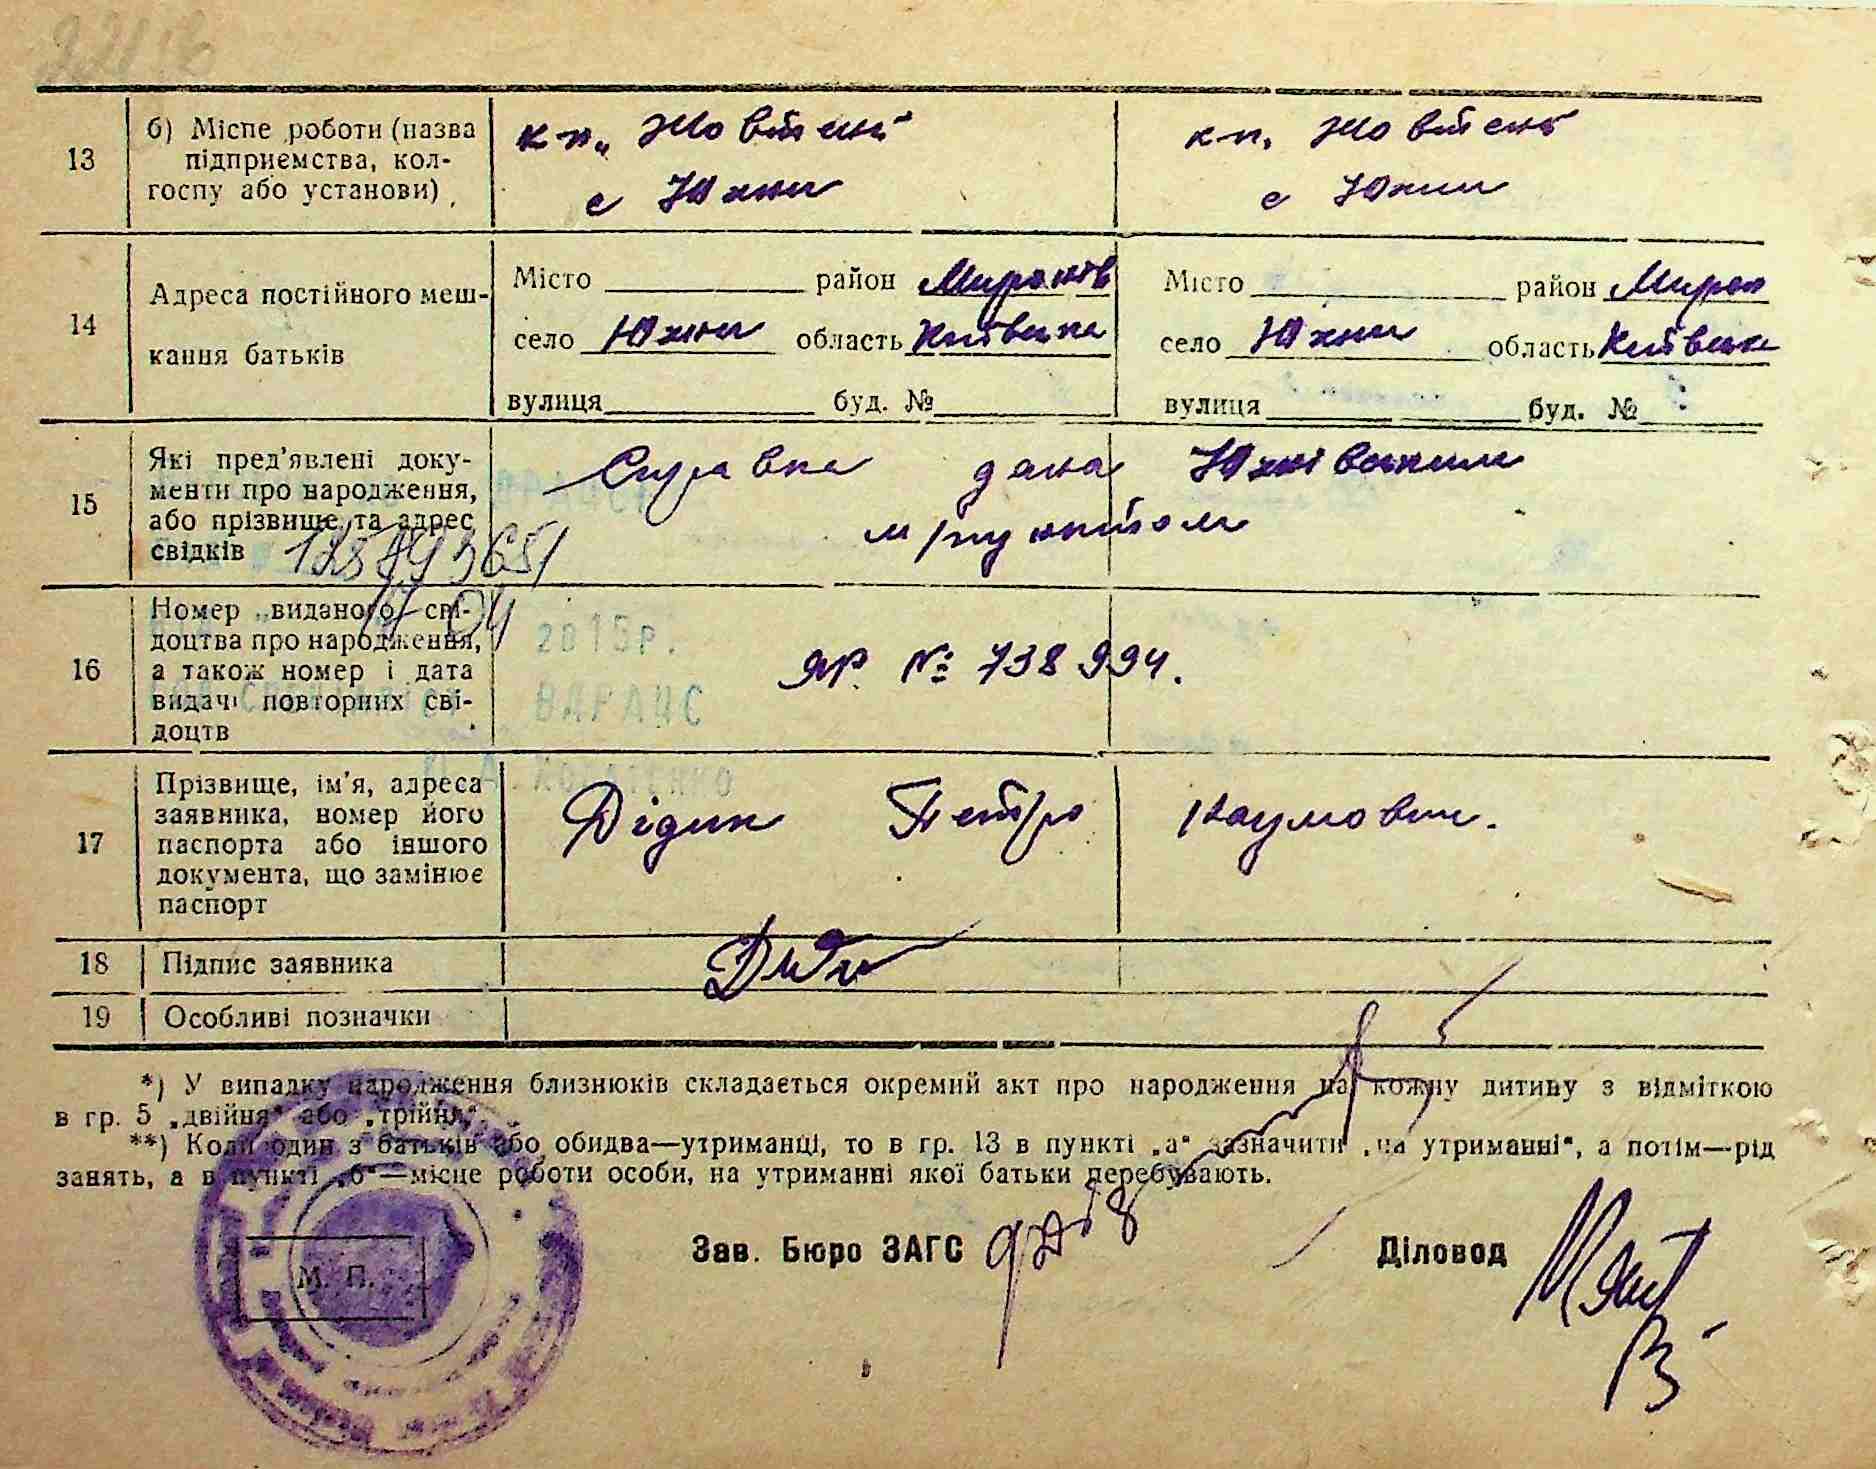 13
б) Місце роботи (назва
підприємства, кол-
госпу або установи)
кп. „Жовтень"
с Юхни
кп. Жовтень
с Юхни
14
Адреса постійного меш-
кання батьків
Місто район Миронів
село Юхни область Київська
вулиця буд. №
Місто район Мирон
село Юхни область Київськ
вулиця буд. №
15
Які пред'явлені доку-
менти про народження,
або прізвище та адрес
свідків
Справка дана Юхнівським
16
Номер виданого сві-
доцтва про народження,
а також номер і дата
видачі повторних сві-
доцтв
2015р.
ВДРАЦС
ЯР № 738994.
17
Прізвище, ім'я, адреса
заявника, номер його
паспорта або іншого
документа, що замінює
паспорт
Дідик Петро Наумович.
18
Підпис заявника
19
Особливі позначки
*) У випадку народження близнюків складається окремий акт про народження на кожну дитину з відміткою
в гр. 5 „двійня" або „трійня".
**) Коли один з батьків або обидва—утриманці, то в гр. 13 в пункті „а" зазначити „на утриманні", а потім—рід
занять, а в пункті „б"—місце роботи особи, на утриманні якої батьки перебувають.
Зав. Бюро ЗАГС
Діловод
М. П.